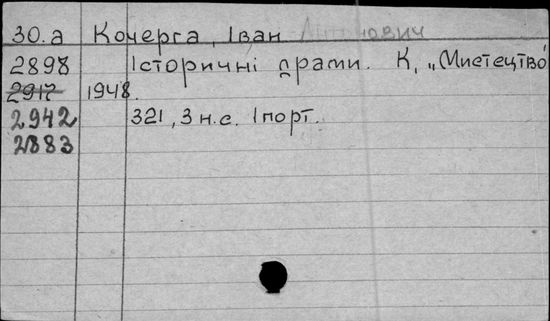 30.а Кочерга, Іван Антонович
2898 Історичні драми. К, „Мистецтво"
2917 1948.
2942 321, 3 н.с. 1 порт.
2883